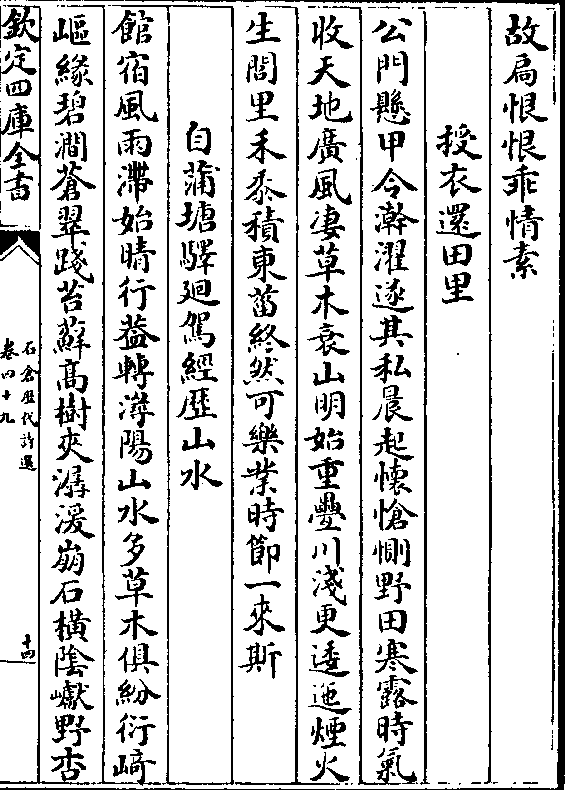 故扄恨恨乖情素
授衣還田里
公門懸甲令澣濯遂其私晨起懐愴惻野田寒露時氣
收天地廣風凄草木衰山明始重疊川淺更逶迤煙火
生閭里禾黍積東菑終然可樂業時節一來斯
自蒲塘驛廻駕經歴山水
館宿風雨滯始晴行葢轉潯陽山水多草木俱紛衍﨑
嶇緣碧澗蒼翠踐苔蘚髙樹夾潺湲崩石横陰巘野杏
欽定四庫全書
石倉歴代詩選
卷四十九
十四